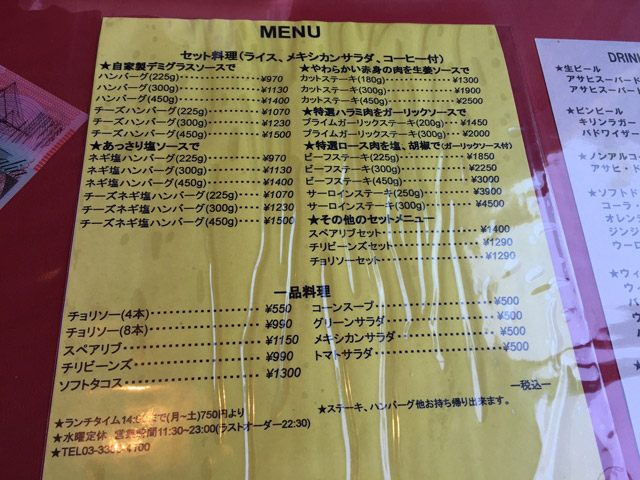 MENU
セット料理(ライス、メキシカンサラダ、コーヒー付)
★自家製デミグラスソースで
ハンバーグ(225g)‥‥‥‥‥¥970
ハンバーグ(300g)‥‥‥‥‥¥1130
ハンバーグ(450g)‥‥‥‥‥¥1400
チーズハンバーグ(225g)‥‥‥¥1070
チーズハンバーグ(300g)‥‥‥¥1230
チーズハンバーグ(450g)‥‥‥¥1500
★あっさり塩ソースで
ネギ塩ハンバーグ(225g)‥‥‥¥970
ネギ塩ハンバーグ(300g)‥‥‥¥1130
ネギ塩ハンバーグ(450g)‥‥‥¥1400
チーズネギ塩ハンバーグ(225g)‥‥¥1070
チーズネギ塩ハンバーグ(300g)‥‥¥1230
チーズネギ塩ハンバーグ(450g)‥‥¥1500
★やわらかい赤身の肉を生姜ソースで
カットステーキ(180g)‥‥‥‥¥1300
カットステーキ(300g)‥‥‥‥¥1900
カットステーキ(450g)‥‥‥‥¥2500
★特選ハラミ肉をガーリックソースで
プライムガーリックステーキ(200g)‥¥1450
プライムガーリックステーキ(300g)‥¥2000
★特選ロース肉を塩、胡椒で(ガーリックソース付)
ビーフステーキ(225g)‥‥‥‥¥1850
ビーフステーキ(300g)‥‥‥‥¥2250
ビーフステーキ(450g)‥‥‥‥¥3000
サーロインステーキ(250g)‥‥‥¥3900
サーロインステーキ(300g)‥‥‥¥4500
★その他のセットメニュー
スペアリブセット‥‥‥‥‥¥1400
チリビーンズセット‥‥‥‥¥1290
チョリソーセット‥‥‥‥‥¥1290
一品料理
チョリソー(4本)‥‥‥‥‥¥550
チョリソー(8本)‥‥‥‥‥¥990
スペアリブ‥‥‥‥‥‥‥¥1150
チリビーンズ‥‥‥‥‥‥¥990
ソフトタコス‥‥‥‥‥‥¥1300
コーンスープ‥‥‥‥‥‥¥500
グリーンサラダ‥‥‥‥‥¥500
メキシカンサラダ‥‥‥‥¥500
トマトサラダ‥‥‥‥‥‥¥500
―税込―
★ステーキ、ハンバーグ他お持ち帰り出来ます。
★ランチタイム14:で(月~土)750円より
★水曜定休 営業時間11:30~23:00(ラストオーダー22:30)
★TEL03-33
DRINK
★生ビール
アサヒスーパード
アサヒスーパード
★ビンビール
キリンラガー
バドワイザー
★ノンアルコ
アサヒ・ド
★ソフトド
コーラ
オレン
ジンジ
ウーロ
★ウィ
ウィ